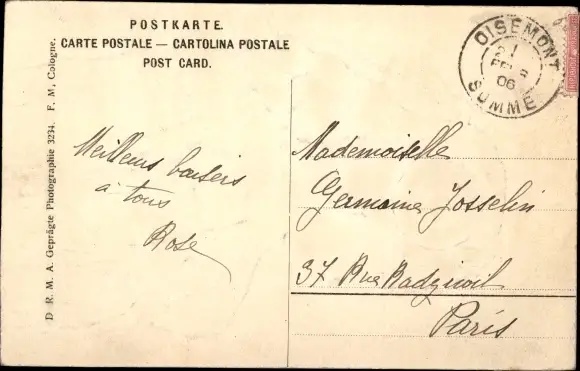 POSTKARTE.
CARTE POSTALE — CARTOLINA POSTALE
POST CARD.
D R. M. A. Geprägte Photographie 3234. F. M. Cologne.
OISEMONT
21
06
SOMME
Meilleurs baisers
à tous
Rose
Mademoiselle
Germaine Josselin
37 Rue Radziwil
Paris